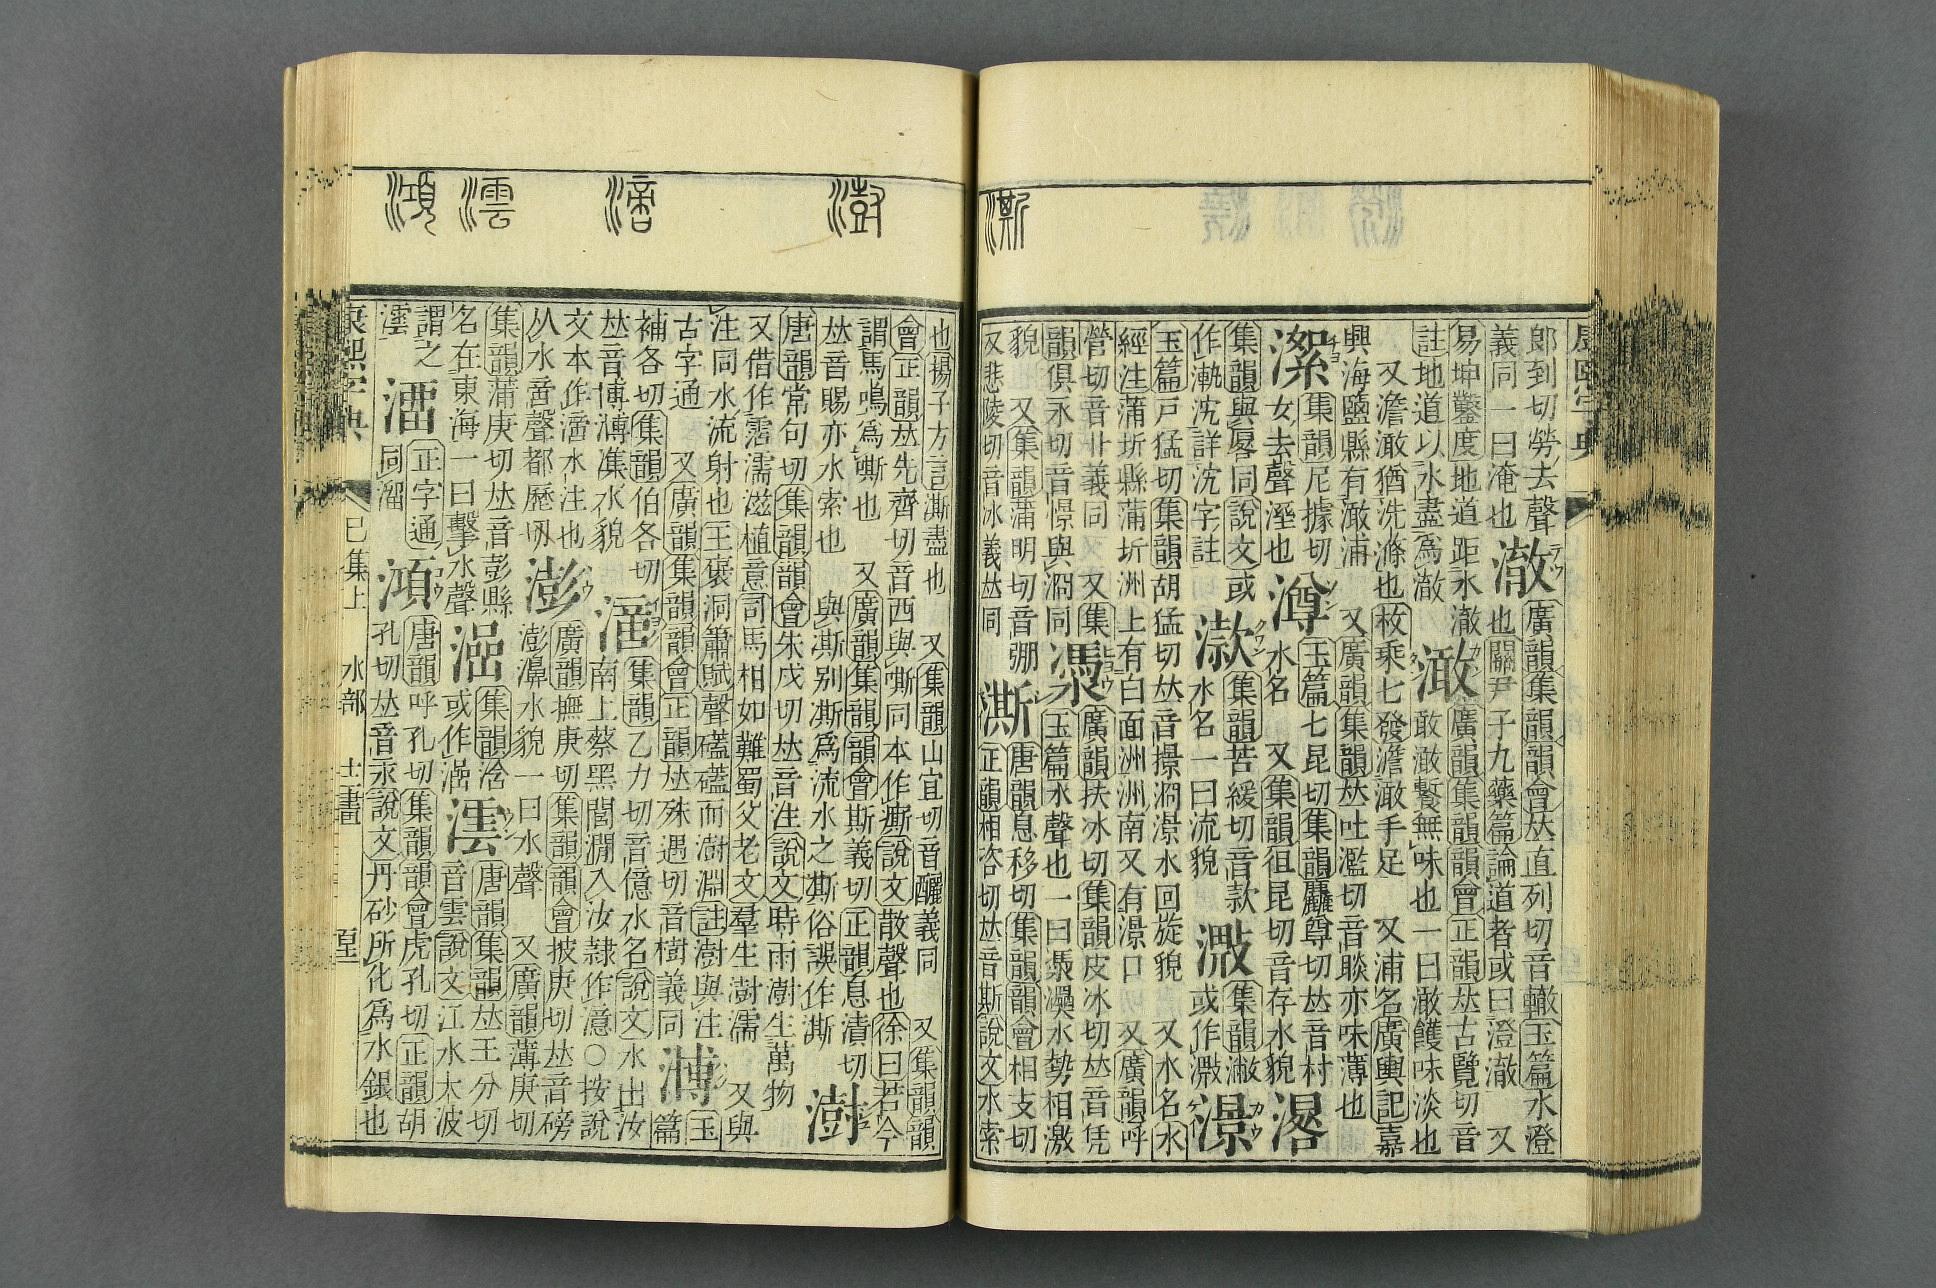 郎到切勞去聲 澈 廣韻集韻韻會𠀤直列切音轍玉篇水澄
義同一曰淹也 也關尹子九藥篇論道者或曰澄澈 又
易坤鑿度地道距水澈 澉 廣韻集韻韻會正韻𠀤古覽切音
註地道以水盡爲澈 敢澉𩞄無味也一曰澉㬦味淡也
又澹澉猶洗滌也枚乘七發澹澉手足 又浦名廣輿記嘉
興海鹽縣有澉浦 又廣韻集韻𠀤吐濫切音賧亦味薄也
潔 集韻尼據切 澊 玉篇七昆切集韻麤尊切𠀤音村
女去聲溼也 水名 又集韻徂昆切音存水貌 㵧
集韻與㗉同說文或 潡 集韻苦緩切音款 㵟 集韻潎 澋
作漸沇詳沇字註 水名一曰流貌 或作㵟
玉篇戶猛切集韻胡猛切𠀤音㬌澗澋水回旋貌 又水名水
經注蒲圻縣蒲圻洲上有白面洲洲南又有澋口 又廣韻呼
營切音卝義同 又集 㵗 廣韻扶冰切集韻皮冰切𠀤音凭
韻俱永切音憬與㵋同 玉篇水聲也一曰㵗㶔水勢相激
貌 又集韻蒲明切音弸 澌 唐韻息移切集韻韻會相支切
又悲陵切音冰義𠀤同 正韻相咨切𠀤音斯說文水索
澌
澍 㴿 澐 澒
也揚子方言澌盡也 又集韻山宜切音釃義同 又集韻韻
會正韻𠀤先齊切音西與嘶同本作㾷說文散聲也徐曰若今
謂馬鳴爲嘶也 又廣韻集韻韻會斯義切正韻息漬切 澍
𠀤音賜亦水索也 與凘別凘爲流水之凘俗誤作澌
唐韻常句切集韻韻會朱戍切𠀤音注說文時雨澍生萬物
又借作霔濡滋植意司馬相如難蜀父老文羣生澍濡 又與
注同水流射也王褒洞簫賦聲礚礚而澍淵註澍與注
古字通 又廣韻集韻韻會正韻𠀤殊遇切音樹義同 㵨 玉篇
補各切集韻伯各切 㴿 集韻乙力切音億水名說文水出汝
𠀤音博㵨㵊水貌 南上蔡黑閭澗入汝隷作澺○按說
文本作㴿水注也 澎 廣韻撫庚切集韻韻會披庚切𠀤音磅
从水啻聲都歷切 澎濞水貌一曰水聲 又廣韻薄庚切
集韻蒲庚切𠀤音彭縣 㴩 集韻浛 澐 唐韻集韻𠀤王分切
名在東海一曰擊水聲 或作㴩 音雲說文江水大波
謂之 澑 正字通 澒 唐韻呼孔切集韻韻會虎孔切正韻胡
澐 同溜 孔切𠀤音汞說文丹砂所化爲水銀也
康熙字典 巳集上 水部 十二畫